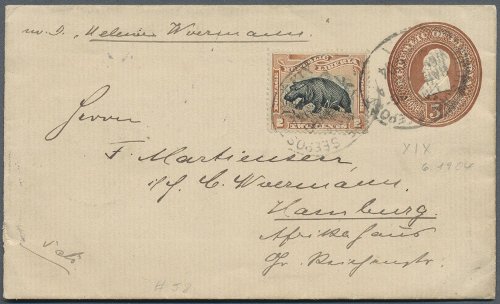 p. D. "Helene Woermann."
REPUBLIC
LIBERIA
2 TWO CENTS 2
REPUBLIC OF
3
Herrn
F. Martiensen
C. Woermann.
Hamburg.
Afrikahaus
Gr. Reichenstr.
XIX
6.1904
# 58